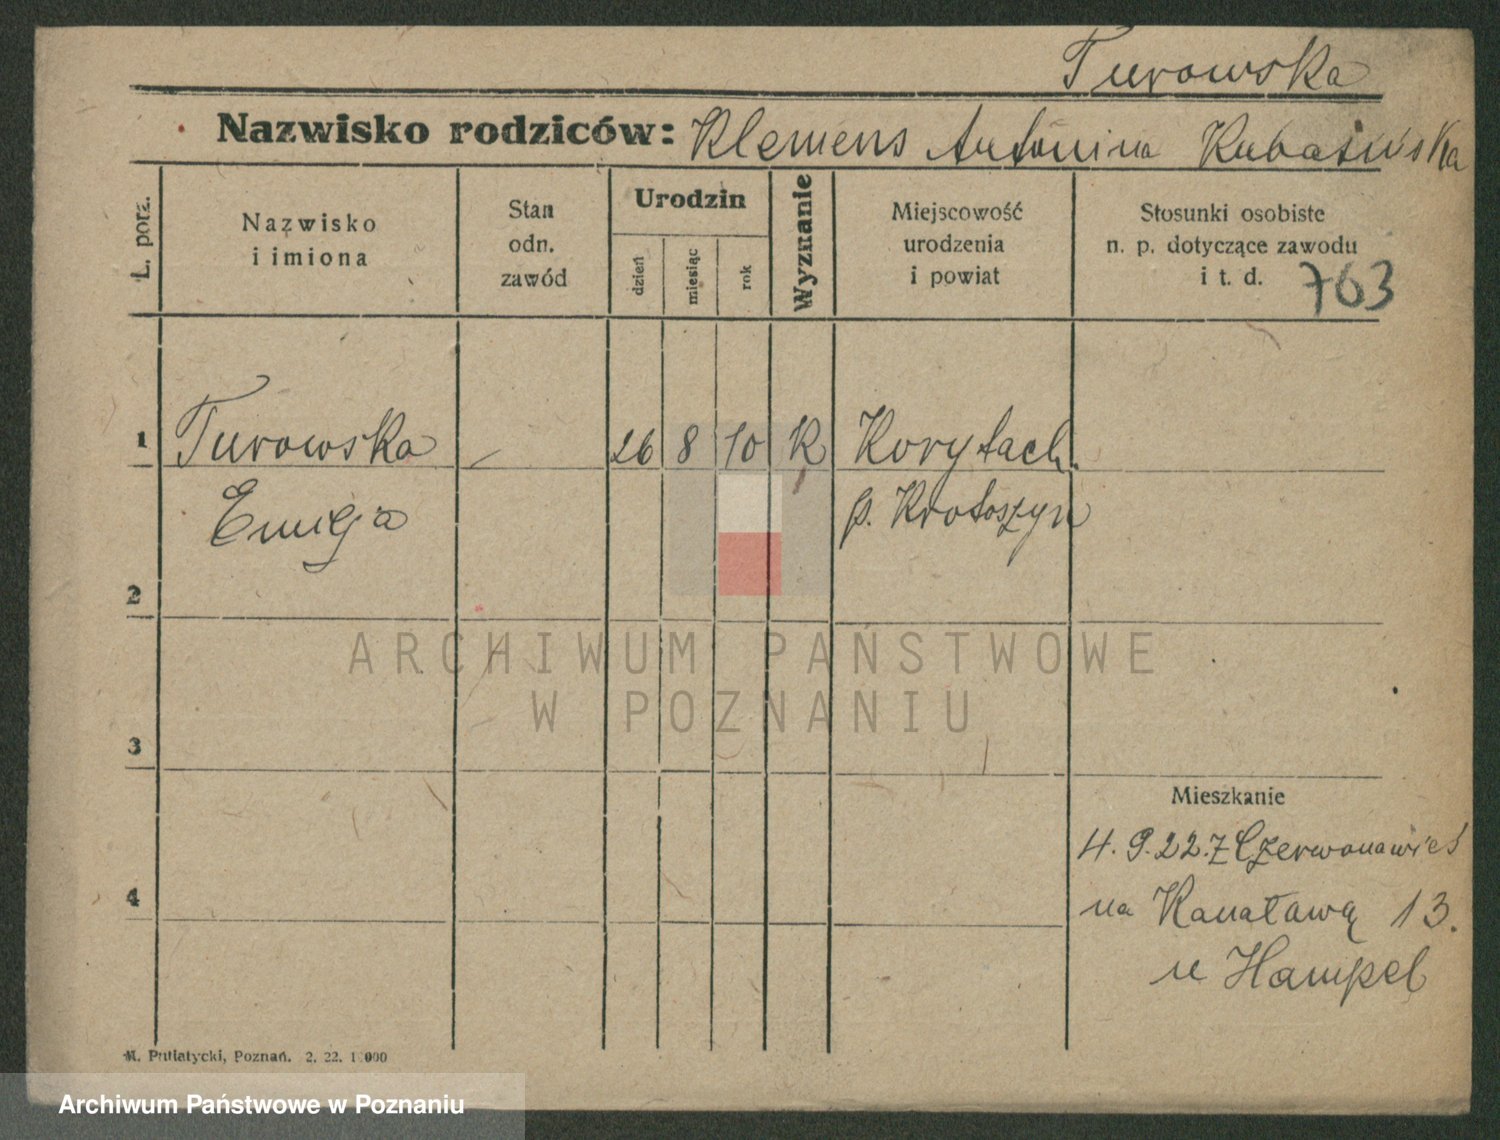 Turowska
Nazwisko rodziców: Klemens Antonina Kubasińska
L. porz.
Nazwisko
i imiona
Stan
odn.
zawód
Urodzin
dzień
miesiąc
rok
Wyznanie
Miejscowość
urodzenia
i powiat
Stosunki osobiste
n. p. dotyczące zawodu
i t. d. 763
1 Turowska — 26 8 10 K Korytach
p. Krotoszyn
2
3
4
Mieszkanie
4. 9. 22. z Czerwonawieś
na Kanałową 13.
u Hampel
M. Putiatycki, Poznań. 2. 22. 1 000
ARCHIWUM PAŃSTWOWE
W POZNANIU
Archiwum Państwowe w Poznaniu